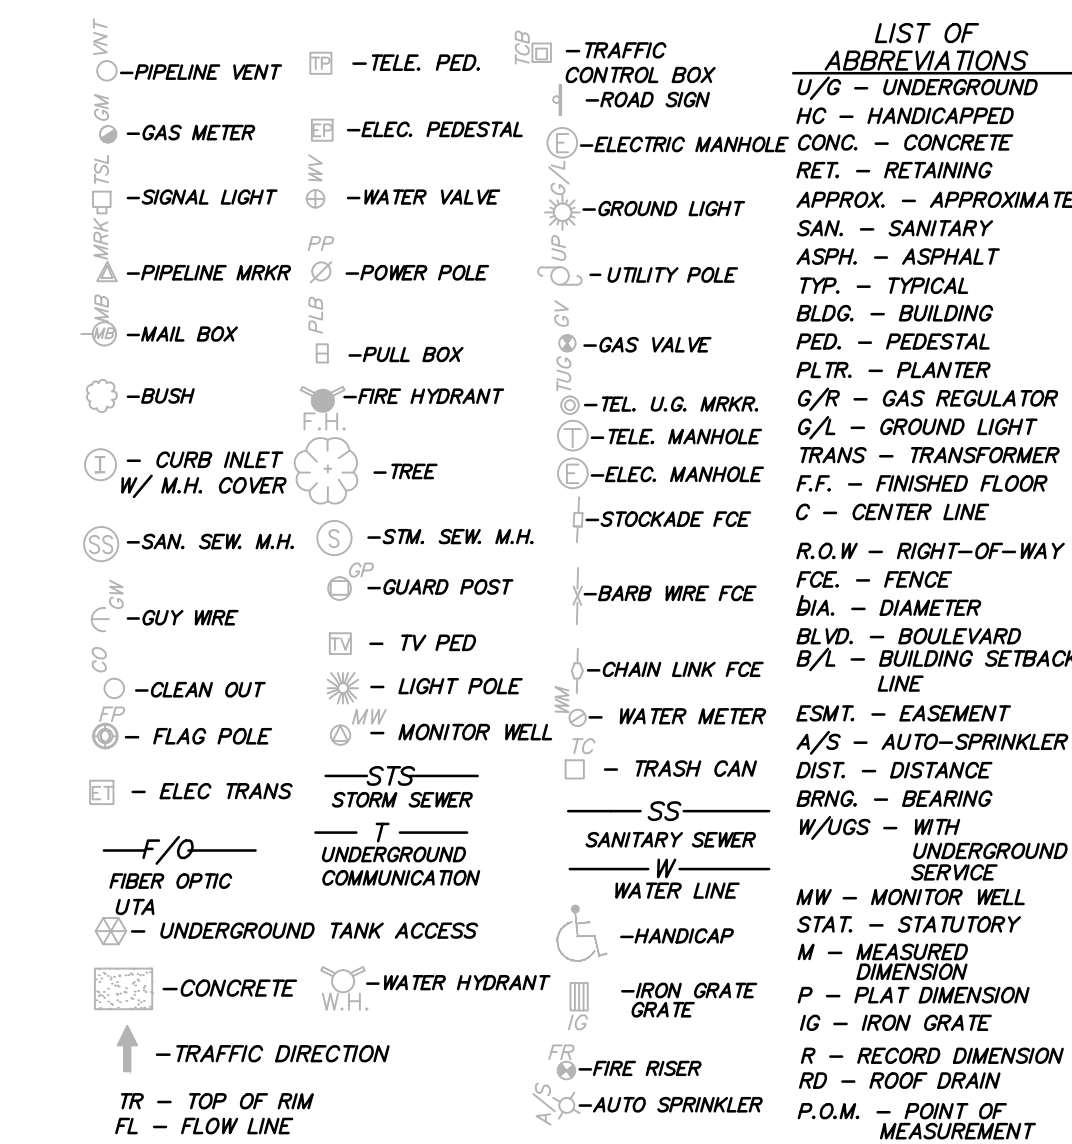 VNT
—PIPELINE VENT
GM
—GAS METER
TSL
—SIGNAL LIGHT
MRK
—PIPELINE MRKR
MB
MB
—MAIL BOX
—BUSH
I
— CURB INLET
W/ M.H. COVER
SS
—SAN. SEW. M.H.
GW
—GUY WIRE
CO
—CLEAN OUT
FP
— FLAG POLE
ET
— ELEC TRANS
F/O
FIBER OPTIC
UTA
— UNDERGROUND TANK ACCESS
—CONCRETE
—TRAFFIC DIRECTION
TR — TOP OF RIM
FL — FLOW LINE
TP
—TELE. PED.
EP
—ELEC. PEDESTAL
WV
—WATER VALVE
PP
—POWER POLE
PLB
—PULL BOX
—FIRE HYDRANT
F.H.
—TREE
S
—STM. SEW. M.H.
GP
—GUARD POST
TV
— TV PED
— LIGHT POLE
MW
— MONITOR WELL
STS
STORM SEWER
T
UNDERGROUND
COMMUNICATION
—WATER HYDRANT
W.H.
TCB
—TRAFFIC
CONTROL BOX
—ROAD SIGN
E
—ELECTRIC MANHOLE
G/L
—GROUND LIGHT
UP
— UTILITY POLE
GV
—GAS VALVE
TUG
—TEL. U.G. MRKR.
T
—TELE. MANHOLE
E
—ELEC. MANHOLE
—STOCKADE FCE
—BARB WIRE FCE
—CHAIN LINK FCE
WM
— WATER METER
TC
— TRASH CAN
SS
SANITARY SEWER
W
WATER LINE
—HANDICAP
—IRON GRATE
GRATE
IG
FR
—FIRE RISER
A/S
—AUTO SPRINKLER
LIST OF
ABBREVIATIONS
U/G — UNDERGROUND
HC — HANDICAPPED
CONC. — CONCRETE
RET. — RETAINING
APPROX. — APPROXIMATE
SAN. — SANITARY
ASPH. — ASPHALT
TYP. — TYPICAL
BLDG. — BUILDING
PED. — PEDESTAL
PLTR. — PLANTER
G/R — GAS REGULATOR
G/L — GROUND LIGHT
TRANS — TRANSFORMER
F.F. — FINISHED FLOOR
C — CENTER LINE
R.O.W — RIGHT—OF—WAY
FCE. — FENCE
DIA. — DIAMETER
BLVD. — BOULEVARD
B/L — BUILDING SETBACK
LINE
ESMT. — EASEMENT
A/S — AUTO—SPRINKLER
DIST. — DISTANCE
BRNG. — BEARING
W/UGS — WITH
UNDERGROUND
SERVICE
MW — MONITOR WELL
STAT. — STATUTORY
M — MEASURED
DIMENSION
P — PLAT DIMENSION
IG — IRON GRATE
R — RECORD DIMENSION
RD — ROOF DRAIN
P.O.M. — POINT OF
MEASUREMENT